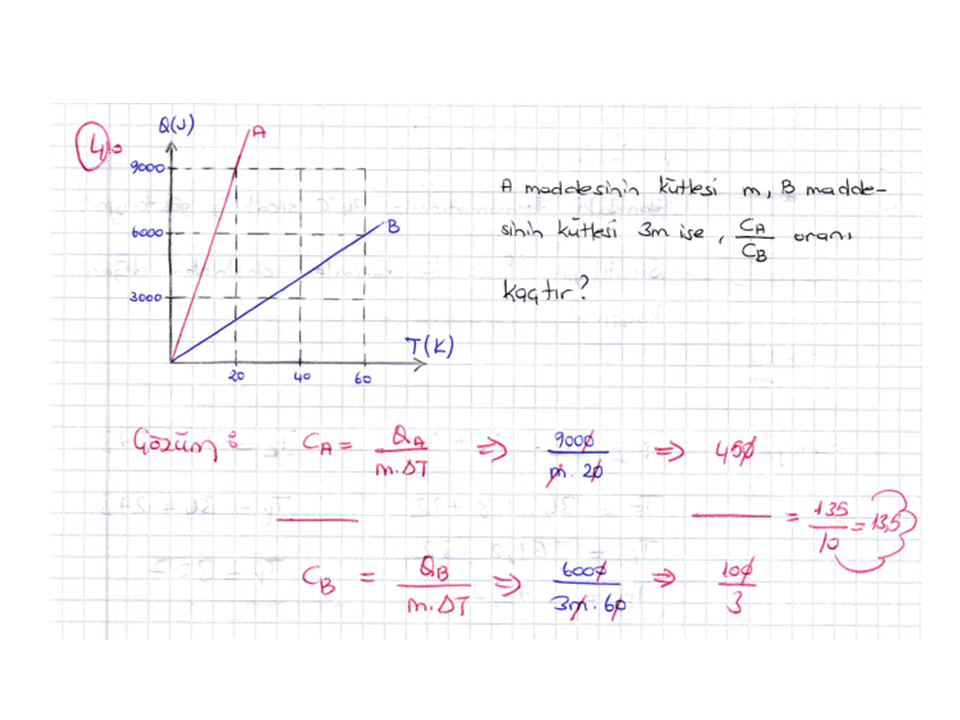 4.
Q(J)
A
9000
6000
B
3000
T(K)
20 40 60
A maddesinin kütlesi m, B madde-
sinin kütlesi 3m ise, CA/CB oranı
kaçtır?
Çözüm : CA = QA/m.ΔT ⇒ 9000/m.20 ⇒ 450
= 135/10 = 13,5
CB = QB/m.ΔT ⇒ 6000/3m.60 ⇒ 100/3